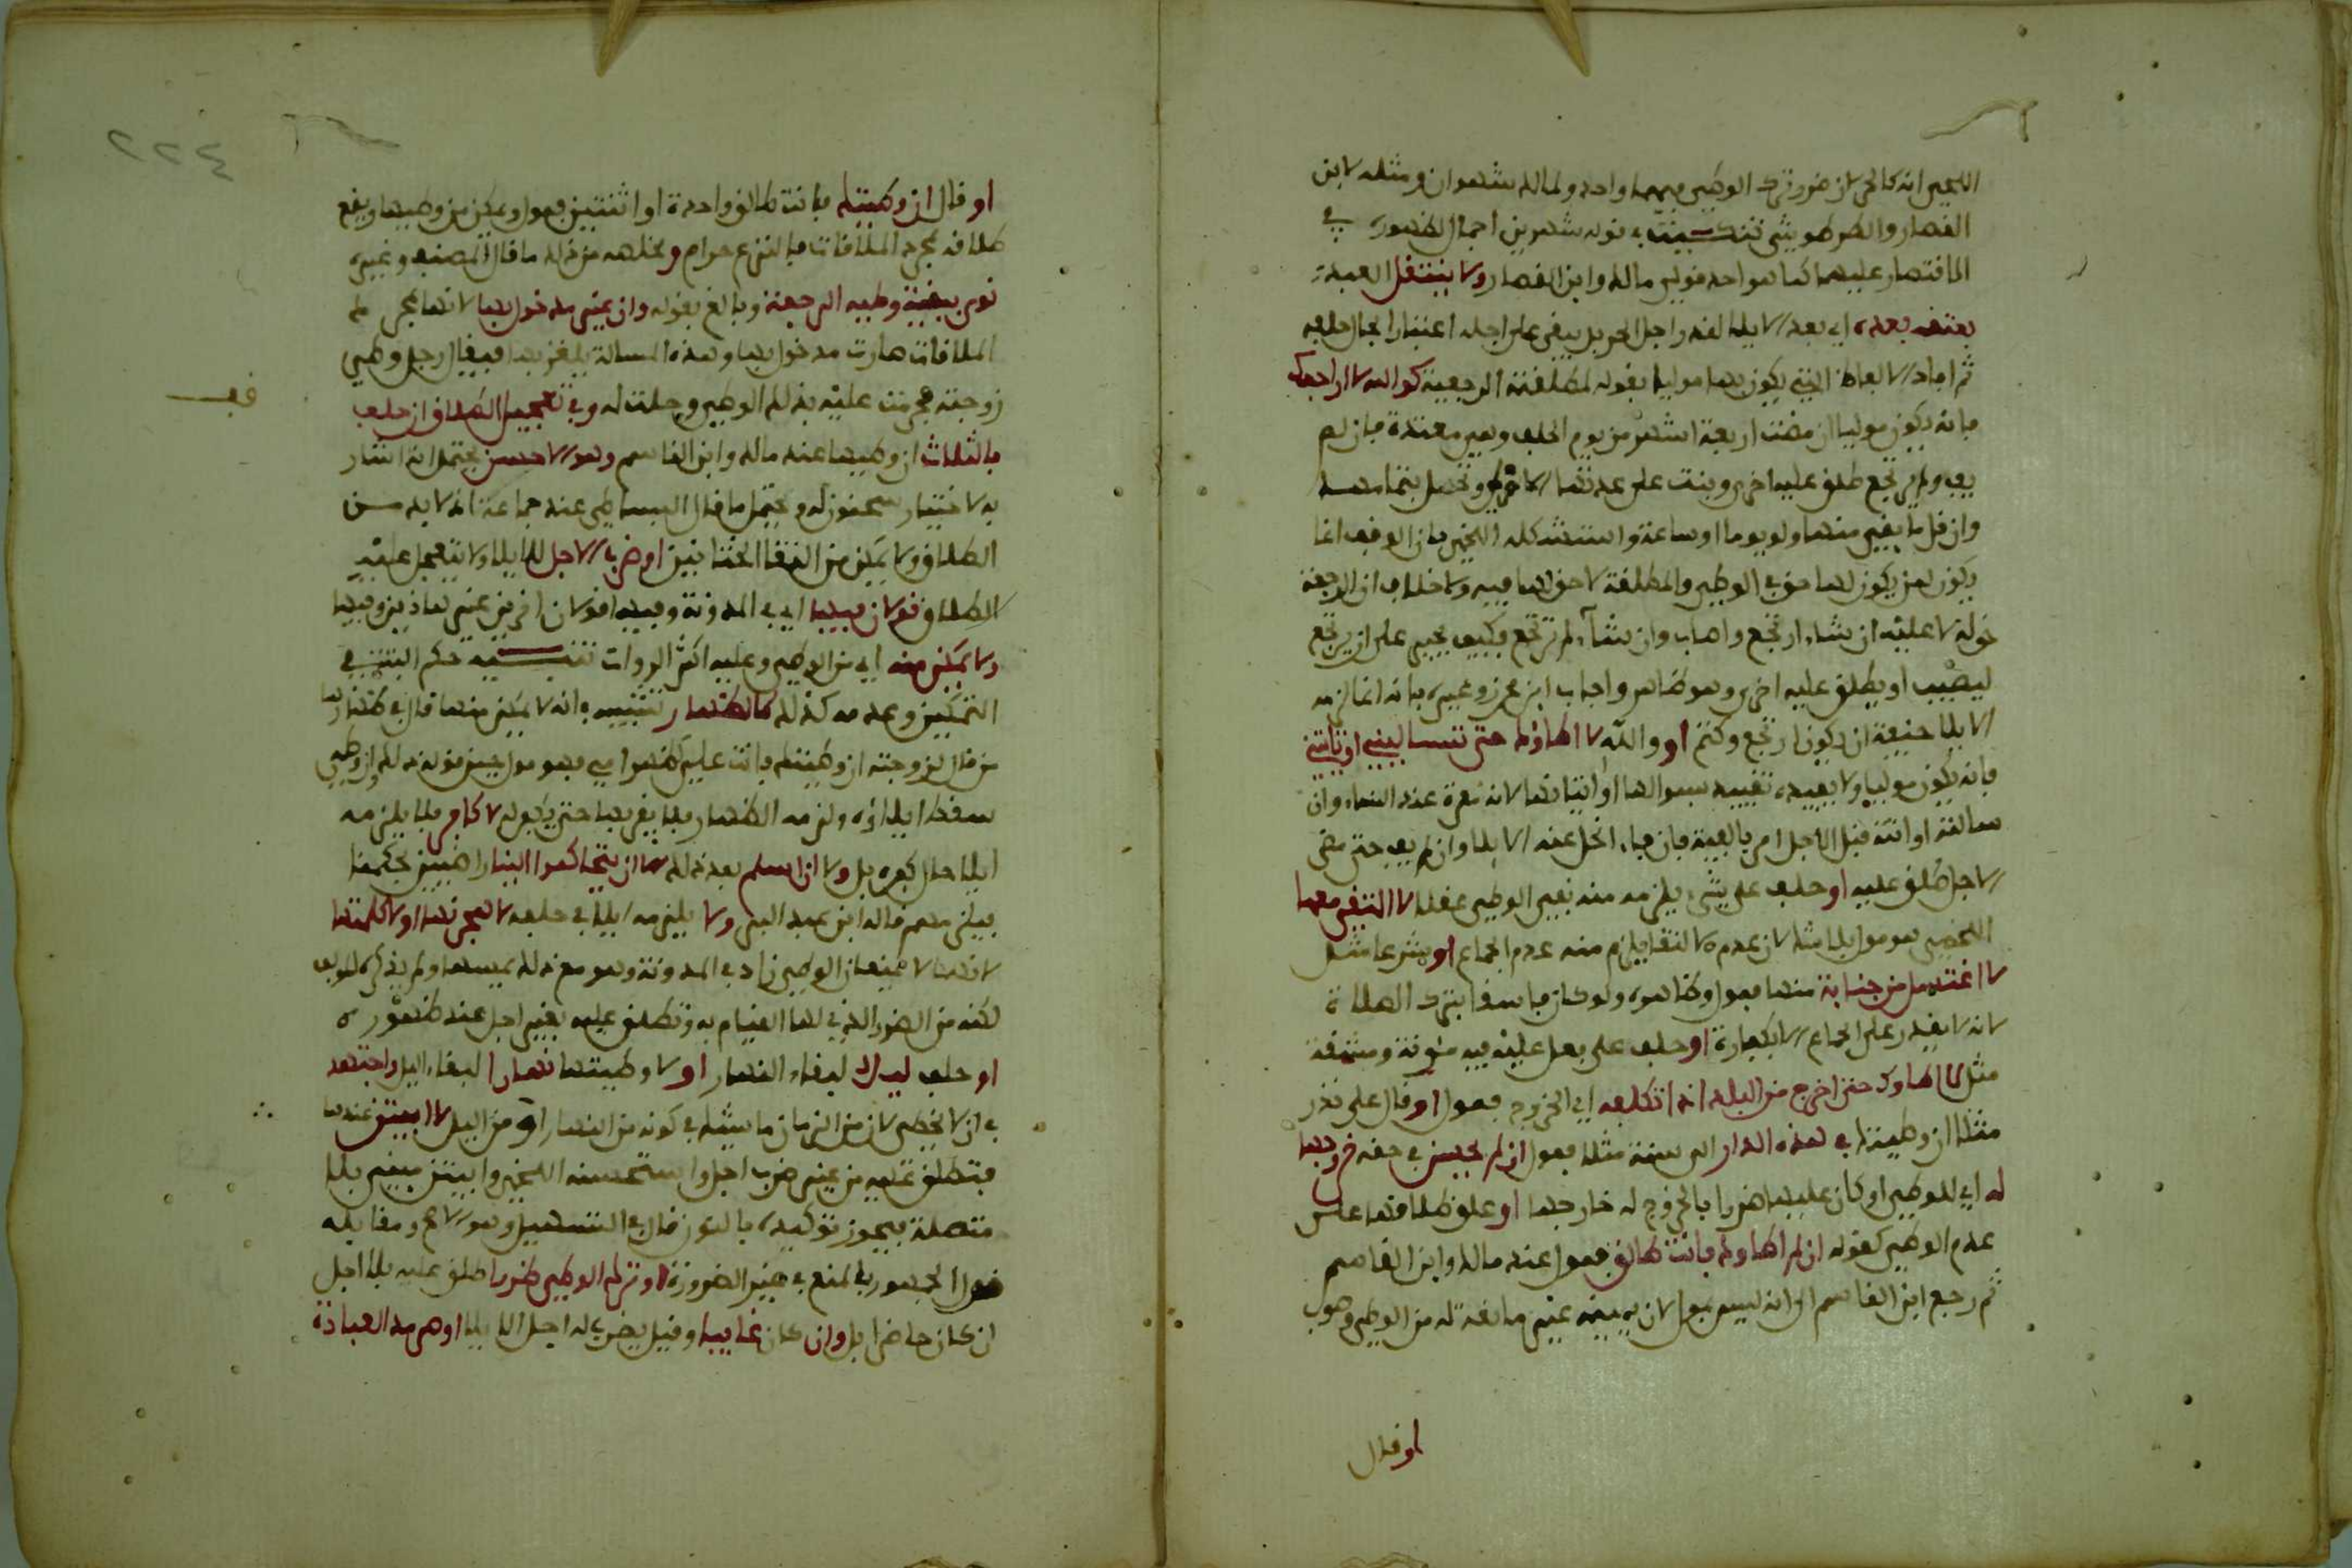 اللخمي انه كالحر لان ضرر ترك الوطي فيهما واحد ولمالك شهران ومثله لابن
القصار والطرطوشي تنكيت في قوله شهرين اجمال لظهوره في
الاقتصار عليهما كما هو احد قولي مالك وابن القصار ولا ينتقل العبد
بعتقه بعده اي بعد الايلا لقدر اجل الحر بل يبقى على اجله اعتبارا بحال حلفه
ثم افاد الالفاظ التي يكون بها موليا بقوله لمطلقته الرجعية كوالله لا اراجعك
فانه يكون موليا ان مضت اربعة اشهر من يوم الحلف وهي معتدة فان لم
يف ولم يرتجع طلق عليه اخرى وبنت على عدتها الاولى وتحل بتمامها
وان قل ما بقي منها ولو يوما او ساعة واستشكله اللخمي بان الوقف انما
يكون لمن يكون لها حق في الوطي والمطلقة لا حق لها فيه ولا خلاف ان الرجعة
له لا عليه ان شاء ارتجع واصاب وان شاء لم يرتجع فكيف يجبر على ان يرتجع
ليصيب او يطلق عليه اخرى وهو ظاهر واجاب ابن محرز وغيره بانه انما لزمه
الايلا خيفة ان يكون ارتجع وكتم او والله لا اطاؤك حتى تسالينني او تاتيني
فانه يكون موليا ولا يفيده تقييده بسوالها او اتيانها لانه معرة عند النساء وان
سالته او اتته قبل الاجل امر بالفيئة فان فاء انحل عنه الايلا وان لم يف حتى مضى
الاجل طلق عليه او حلف على شيء يلزمه منه نفي الوطي عقلا لا التقي معها
اللخمي هو مول بلا شك لان عدم الالتقا يلزم منه عدم الجماع او شرعا مثل
لا اغتسل من جنابة منها فمول وظاهره ولو كان فاسقا بترك الصلاة
لانه لا يقدر على الجماع الا بكفارة او حلف على فعل عليه فيه مئونة ومشقة
مثل لا اطاوك حتى اخرج من البلد اذا تكلفه اي الخروج فمول او قال علي نذر
مثلا ان وطيتك في هذه الدار الى سنة مثلا فمول ان لم يحسن في حقه خروجها
له اي للوطي او كان عليها ضررا بالخروج له خارجها او علق طلاقها على
عدم الوطي كقوله ان لم اطاوك فانت طالق فمول عند مالك وابن القاسم
ثم رجع ابن القاسم الى انه ليس بمول لان يمينه غير مانعة له من الوطي وصوب
او قال
٢٢٤
او قال ان وطيتك فانت طالق واحدة او اثنتين فمول ويمكن من وطيها ويقع
طلاقه بمجرد الملاقات فالنزع حرام ومخلصه من ذلك ما قال المصنف وغيره
نوى ببقية وطيه الرجعة وبالغ بقوله وان غير مدخول بها لانها بمجرد
الملاقات صارت مدخول بها وهذه المسالة يلغز بها فيقال رجل وطي
زوجته فحرمت عليه بذلك الوطي وحلت له وفي تعجيل الطلاق ان حلف
قف
بالثلاث ان وطيها عند مالك وابن القاسم وهو الاحسن يحتمل انه اشار
به لاختيار سحنون له ويحتمل ما قال البساطي عند جماعة اذ لا بد من
الطلاق ولا يمكن من التقا الختانين او ضرب الاجل للايلا ولا يتعجل عليه
الطلاق قولان فيها اي في المدونة وفيها قولان اخرين غير هاذين وفيها
ولا يمكن منه اي من الوطي وعليه اكثر الروات تنبيه حكم البتة في
التمكين وعدمه كذلك كالظهار تشبيه في انه لا يمكن منها قال في ظهارها
من قال لزوجته ان وطيتك فانت علي كظهر امي فهو مول حين قوله ذلك فان وطي
سقط ايلاؤه ولزمه الظهار فلا يقربها حتى يكفر لا كافر فلا يلزمه
ايلا حال كفره بل ولا ان اسلم بعد ذلك الا ان يتحاكموا الينا راضين بحكمنا
فيلزمهم قاله ابن عبد البر ولا يلزمه ايلا في حلفه لاهجرنها او لا كلمتها
لانهما لا يمنعان الوطي زاد في المدونة وهو مع ذلك يمسها ولم يذكره المولف
لكنه من الضرر الذي لها القيام به وتطلق عليه بغير اجل عند ظهوره
او حلف ليلا لبقاء النهار او لا وطيتها نهارا لبقاء الليل واجتهد
في ان لا يخص لان من الزمان ما يشك في كونه من النهار او من الليل لا ابيتن عندها
فتطلق عليه من غير ضرب اجل واستحسنه اللخمي وابيتن مبني بلا
متصلة فيجوز توكيده بالنون قال في التسهيل وهو الاصح ومقابله
قول الجمهور بالمنع في غير الضرورة او ترك الوطي ضررا طلق عليه بلا اجل
ان كان حاضرا بل وان كان غايبا وقيل يضرب له اجل الايلا او سرمد العبادة